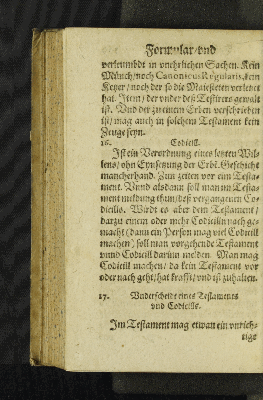 Formular/vnd
verleumbdt in vnehrlichen Sachen. Kein
Münch/noch Canonicus Regularis, kein
Keyer/noch der so die Maiesteten verletzt
hat. Item/der vnder deß Testirers gewalt
ist. Vnd der zu einem Erben verschrieben
ist/mag auch in solchem Testament kein
Zeuge seyn.
16. Codicill.
Ist ein Verordnung eines letzten Wil-
lens/ohn Eynsetzung der Erbē. Geschicht
mancherhand. Zun zeiten vor ein Testa-
ment. Vnnd alsdann soll man im Testa-
ment meldung thun/deß vergangenen Co-
dicills. Wirdt es aber dem Testament/
darzu einem oder mehr Codicilln nach ge-
macht (dann ein Person mag viel Codicill
machen) soll man vorgehende Testament
vnnd Codicill darinn melden. Man mag
Codicill machen/da kein Testament vor
oder nach geht/hat krafft/vnd ist zuhalten.
17. Vnderscheidt eines Testaments
vnd Codicills.
Im Testament mag etwan ein vnrich-
tige